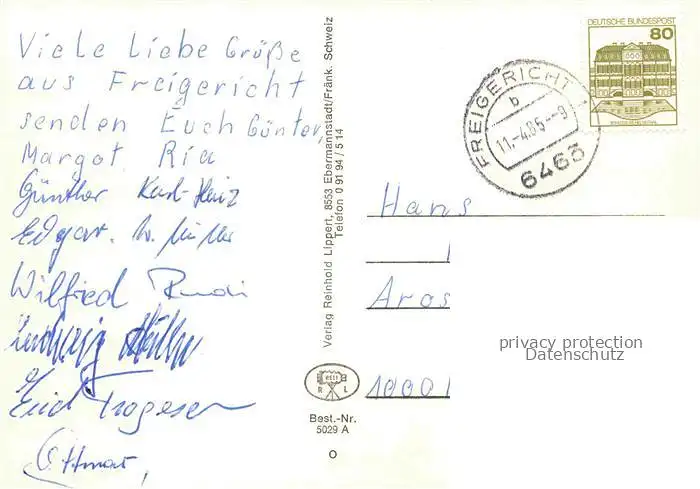 Viele liebe Grüße
aus Freigericht
senden Euch Günter,
Margot, Ria
Günther Karl-Heiz
Edgar.
Wilfried Rudi
Ludwig
Erich
Ottmar,
Verlag Reinhold Lippert, 8553 Ebermannstadt/Fränk. Schweiz
Telefon 0 91 94 / 5 14
R L
Best.-Nr.
5029 A
DEUTSCHE BUNDESPOST
80
FREIGERICHT 1
b
11.-4.85.-9
6463
Hans
Aros
1000
privacy protection
Datenschutz